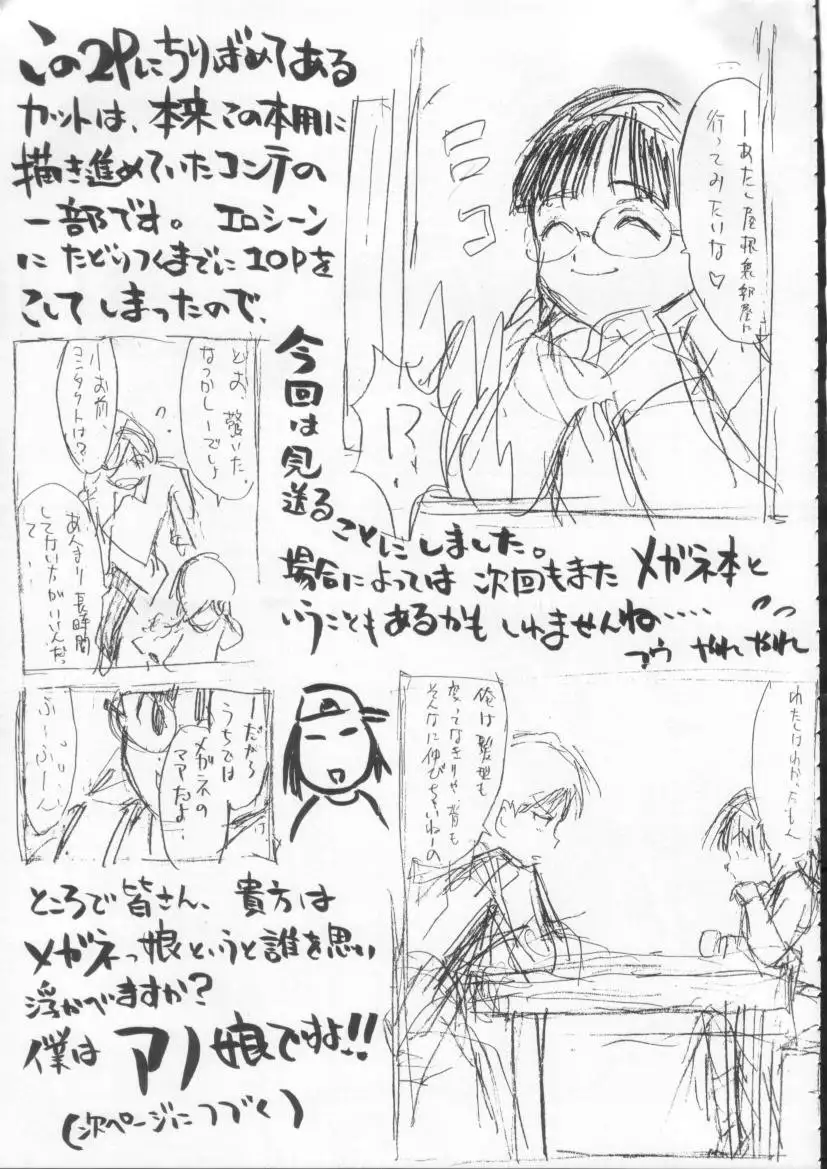 この2Pにちりばめてある
カットは、本来この本用に
描き進めていたコンテの
一部です。エロシーン
にたどりつくまでに10Pを
こしてしまったので、
今回は見送る
ことにしました。
場合によっては次回もまたメガネ本と
いうこともあるかもしれませんね……
フウ やれやれ
ーあたし屋根裏部屋に
行ってみたいな♡
ニコ
!?
とお、驚いた。
なつかしーでしょ
ーお前、
コンタクトは?
あんまり長時間
してない方がいいんだ
って
ーだから
うちでは
メガネの
ママだよ
ふーふーん
わたしはわかったもん
俺は髪型も
変ってなきりゃ、背も
そんなに伸びちゃいねーの
ところで皆さん、貴方は
メガネっ娘というと誰を思い
浮かべますか?
僕はアノ娘ですよ!!
(次ページにつづく)